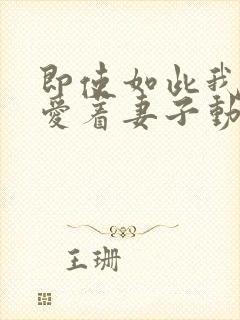 即使如此我
愛着妻子動
王珊